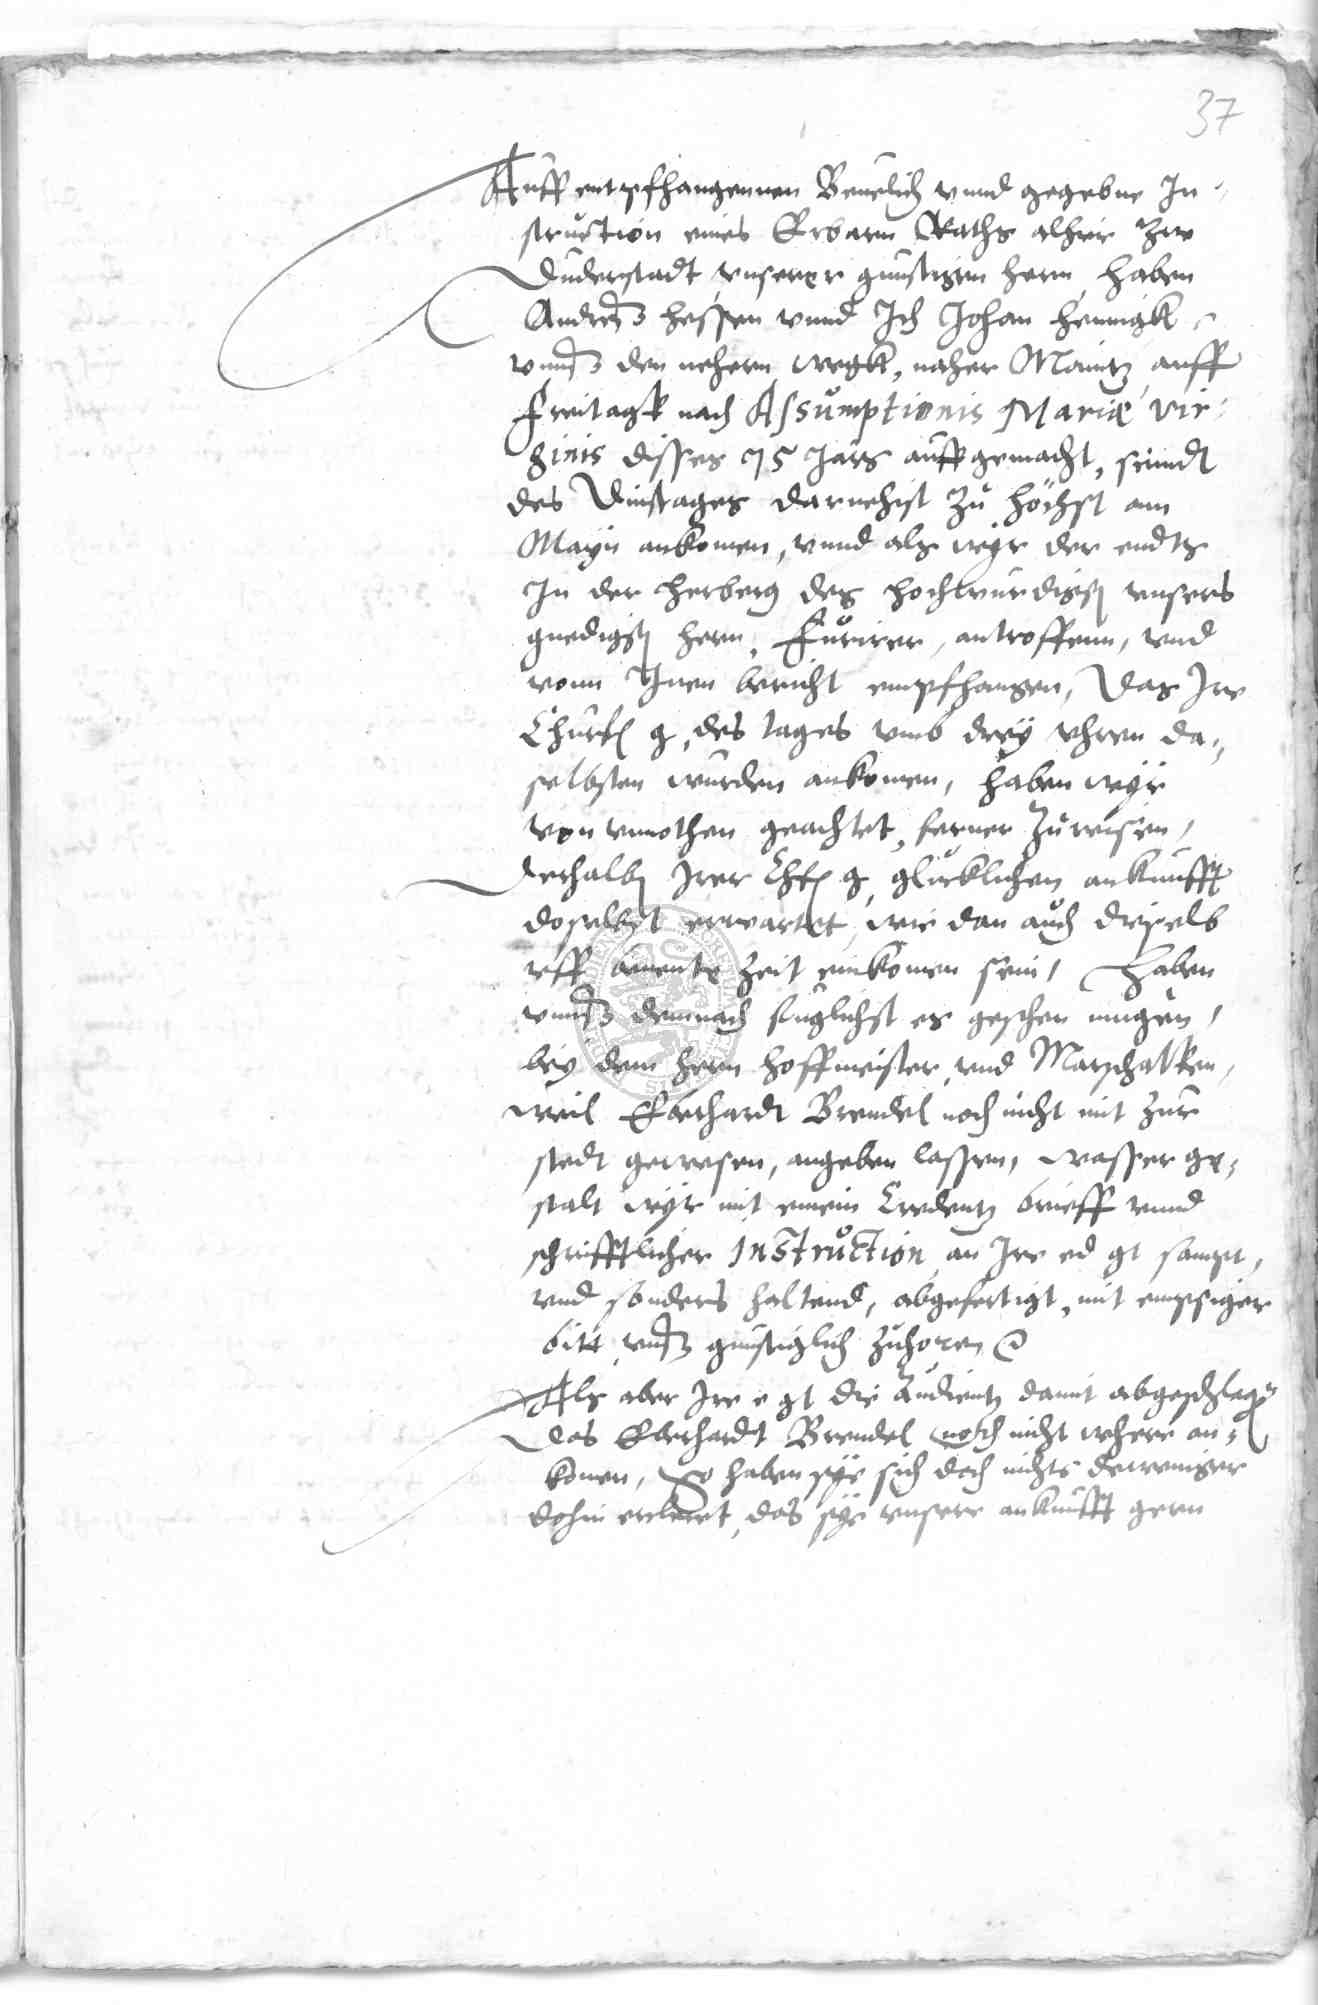 37
Auff entpfhangennen Beuelich vnnd gegebne In-
struction eines Erbarn Raths alhir zw
Duderstadt vnserer gunstigen hern, haben
Andreß hessen vnnd Ich Johan Hennigk
vnnß den nehern wegk, naher Maintz auff
Freitagk nach Assumptionis Mariæ vir-
ginis disses 75 Jars auffgemacht, seindt
des Dinstages darnehist zu höchst am
Mayn ankomen, vnnd als wyr der endts
In der herberg des hochwurdigsten vnsers
gnedigsten hern, Furirer, antroffenn, vnd
vonn Inen bericht empfhangen, Das Ire
Churf g, des tages vmb drey vhren da-,
selbsten wurden ankomen, haben wyr
von vnnothen geachtet, ferner zu reisen,
Derhalben Irer Chf g, glucklichen ankunfft
doselbst erwartet, wie dan auch dieselb
vff benente zeit einkomen sein, Haben
vnnß demnach fuglichst es geschen mugen,
bey dem hern hoffmeister vnd Marschalken,
weil Eberhardt Brendel noch nicht mit zur
stedt gewesen, angeben lassen, wasser ge-,
stalt wyr mit einem Credentz brieff vnnd
schrifftlicher Instruction an Ire ed gt sampt,
vnd sonders haltend, abgefertigt, mit empsiger
bitt vnß gunstiglich zuhoren
Als aber Ire e gt die Audientz damit abgeschlagen
das Eberhardt Brendel noch nicht where an-,
komen, So haben sye sich doch nichts deweniger
dohin ercleret, das sye vnsere ankunfft gern